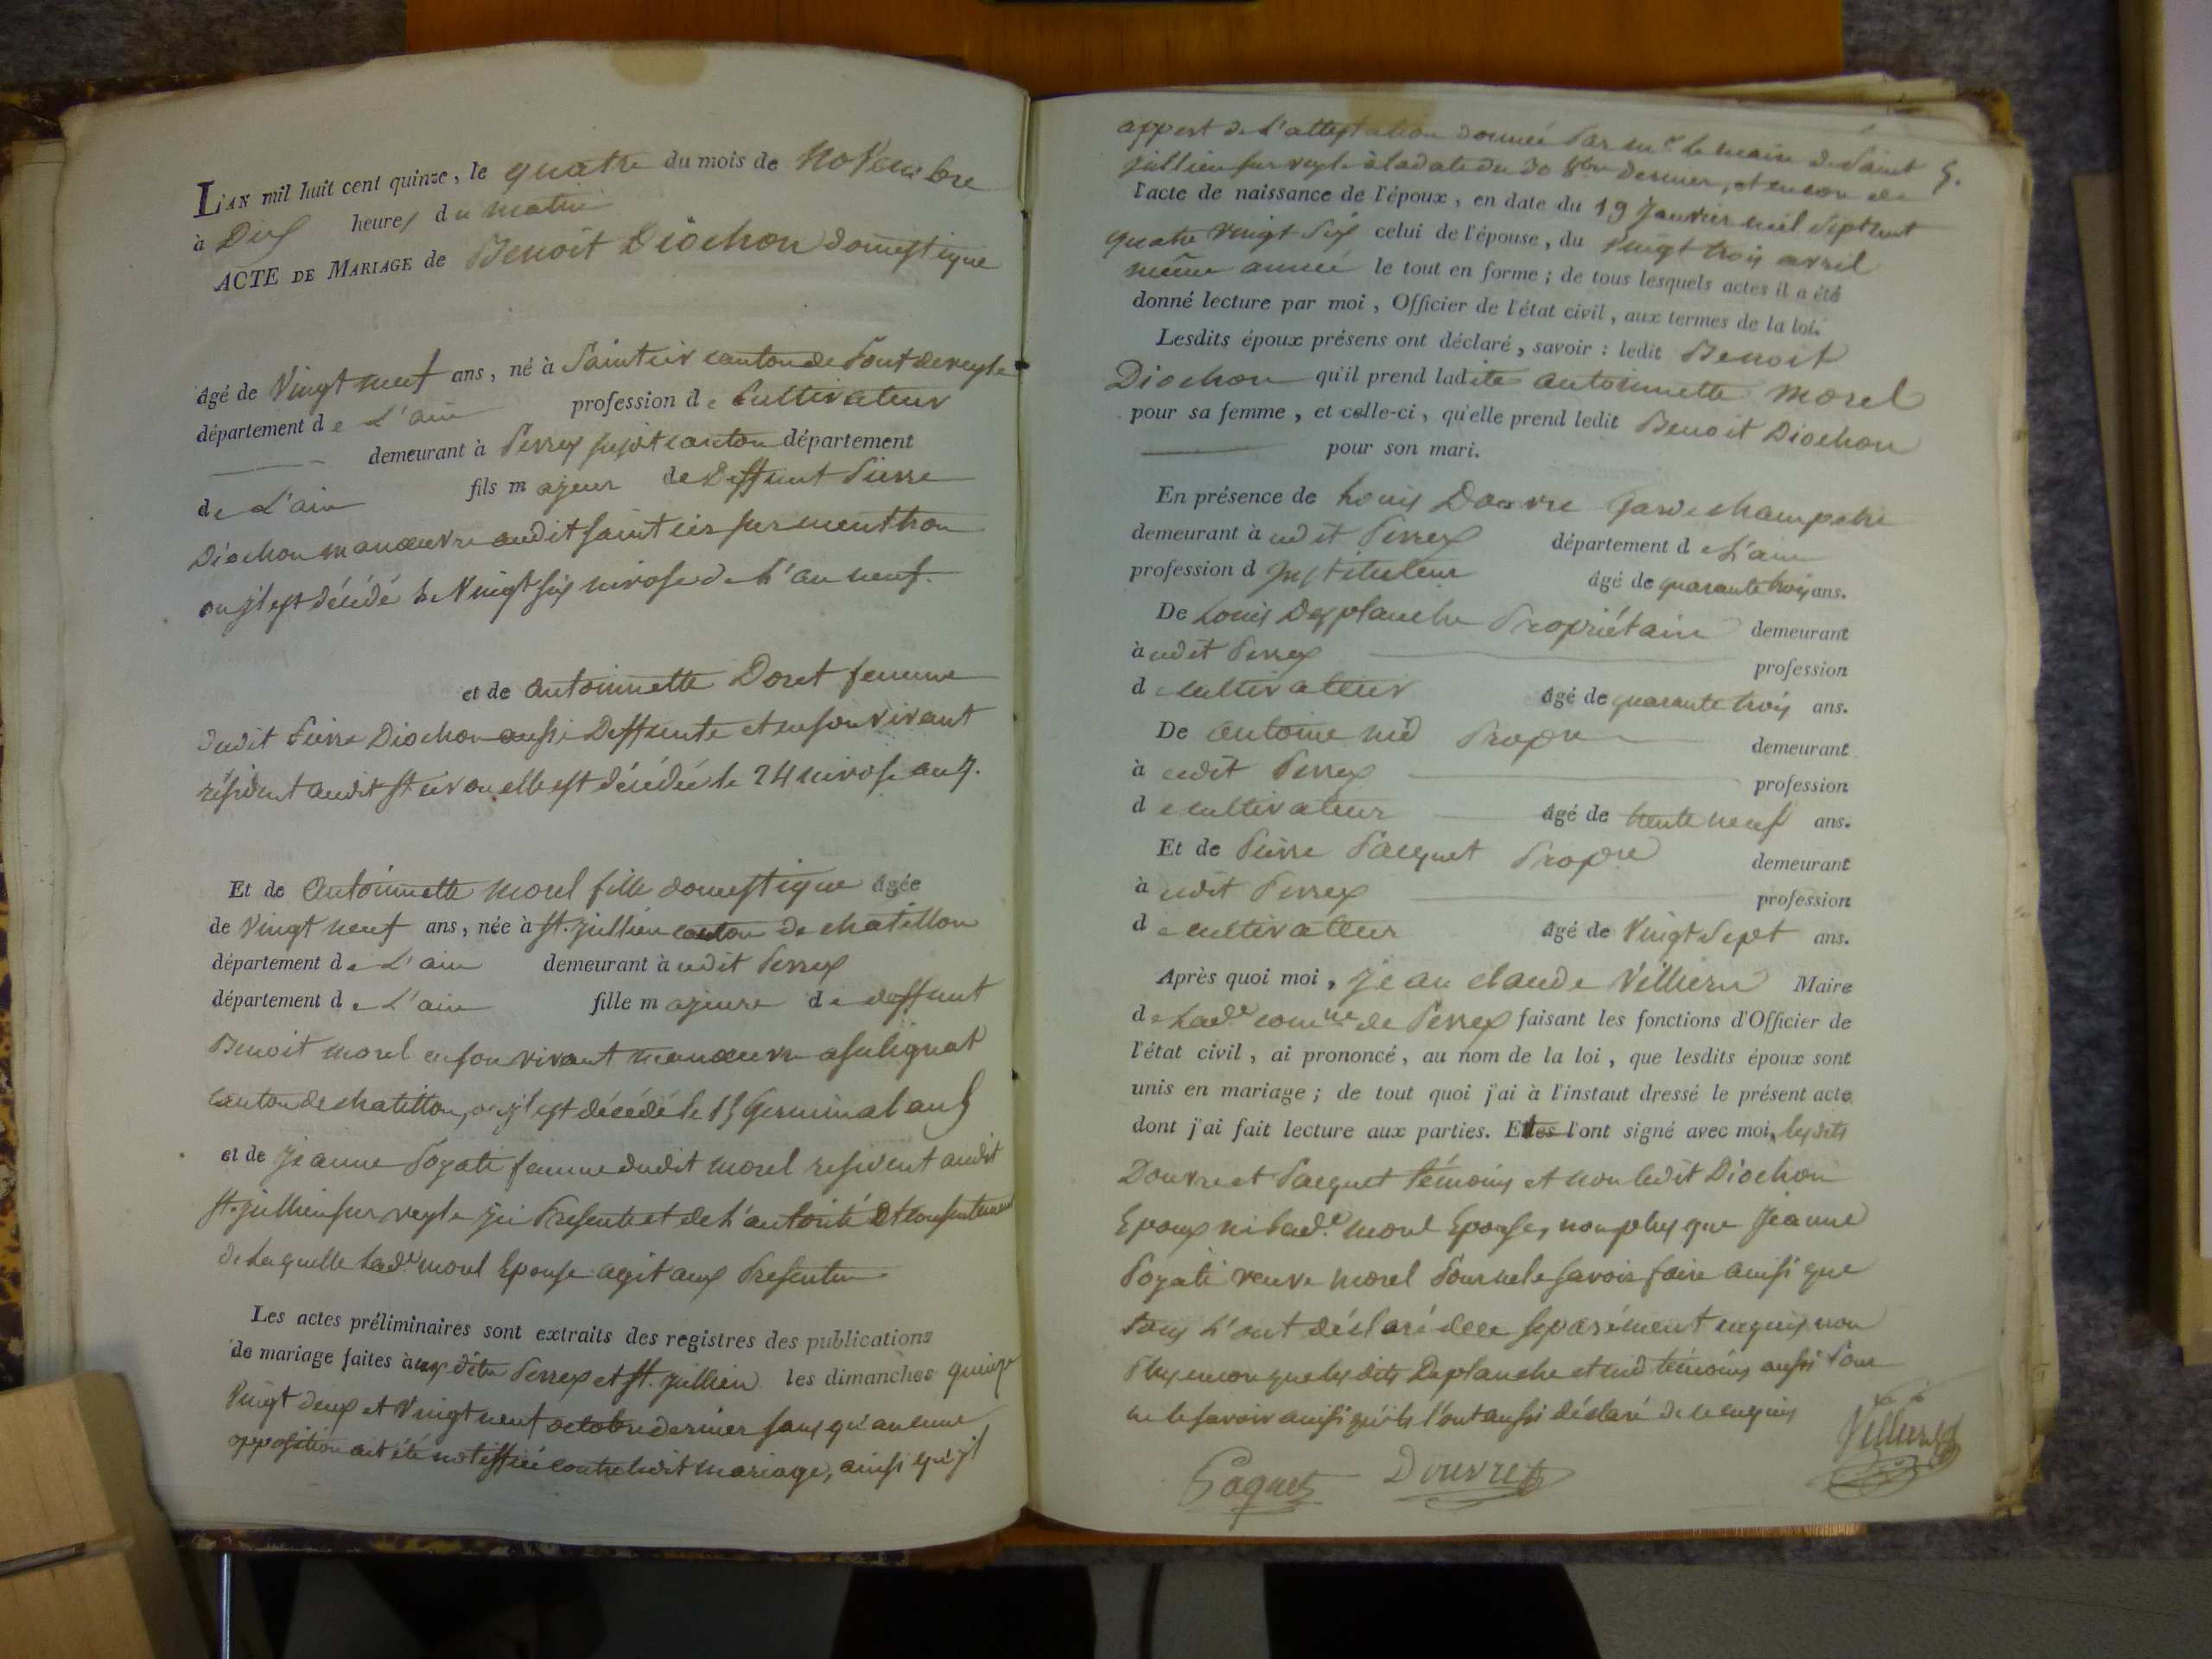 L'AN mil huit cent quinze, le quatre du mois de Novembre
à Dix heures du matin
ACTE DE MARIAGE de Benoit Diochon domestique
âgé de Vingt neuf ans, né à Saint cir canton de Pont de veyle
département de L'ain profession de Cultivateur
demeurant à Perrex susdit canton département
de L'ain fils majeur de Deffunt Pierre
Diochon manœuvre audit Saint cir sur menthon
ou jl est décédé le Vingt six nivose de L'an neuf.
et de antoinnette Doret femme
dudit Pierre Diochon aussi Deffunte et en son vivant
résident audit St. cir ou elle est décédée le 24 nivose an 7.
Et de Antoinnette morel fille domestique âgée
de Vingt neuf ans, née à St. jullien canton de chatillon
département de L'ain demeurant à udit Perrex
département de L'ain fille majeure de deffunt
Benoit morel en son vivant manœuvre a sulignat
canton de chatillon, ou jl est décédé le 15 Germinal an 5
et de jeanne Poyati femme dudit morel resident audit
St. jullien sur veyle jci Presente et de L'autorité Et consentement
de Laquelle Lade. morel Epouse agit aux Presentes
Les actes préliminaires sont extraits des registres des publications
de mariage faites à ux dits Perrex et St. jullien les dimanches quinze
Vingt deux et Vingt neuf octobre dernier sans qu'aucune
opposition ait été notiffiée contre ledit mariage, ainsi qu'jl
5.
appert de L'attestation donnée Par mr. le maire de Saint
jullien sur veyle à la date du 30 8bre dernier, et encore de
l'acte de naissance de l'époux, en date du 19 Janvier mil Sept cent
quatre vingt Six celui de l'épouse, du Vingt trois avril
même année le tout en forme ; de tous lesquels actes il a été
donné lecture par moi, Officier de l'état civil, aux termes de la loi.
Lesdits époux présens ont déclaré, savoir : ledit Benoit
Diochon qu'il prend ladite antoinnette Morel
pour sa femme, et celle-ci, qu'elle prend ledit Benoit Diochon
pour son mari.
En présence de Louis Douvre Garde champetre
demeurant à udit Perrex département de L'ain
profession d Jnstituteur âgé de quarante trois ans.
De Louis Desplanche Propriétaire demeurant
à udit Perrex profession
de cultivateur âgé de quarante trois ans.
De Antoine nid Propre demeurant
à udit Perrex profession
de cultivateur âgé de trente neuf ans.
Et de Pierre Pacquet Propre demeurant
à udit Perrex profession
de cultivateur âgé de Vingt Sept ans.
Après quoi moi, jean claude Villieru Maire
de Lade. comune de Perrex faisant les fonctions d'Officier de
l'état civil, ai prononcé, au nom de la loi, que lesdits époux sont
unis en mariage ; de tout quoi j'ai à l'instant dressé le présent acte
dont j'ai fait lecture aux parties. Elles l'ont signé avec moi, lesdits
Douvre et Pacquet témoins et non ledit Diochon
Epoux ni Lade. morel Epouse, non plus que Jeanne
Poyati veuve morel Pour ne le savoir faire ainsi que
tous L'ont déclaré de ce separément enquis non
Plus encore que lesdits Deplanche et nid témoins aussi Pour
ne le savoir ainsi qu'ils l'ont aussi déclaré de ce enquis
Paquet Douvre